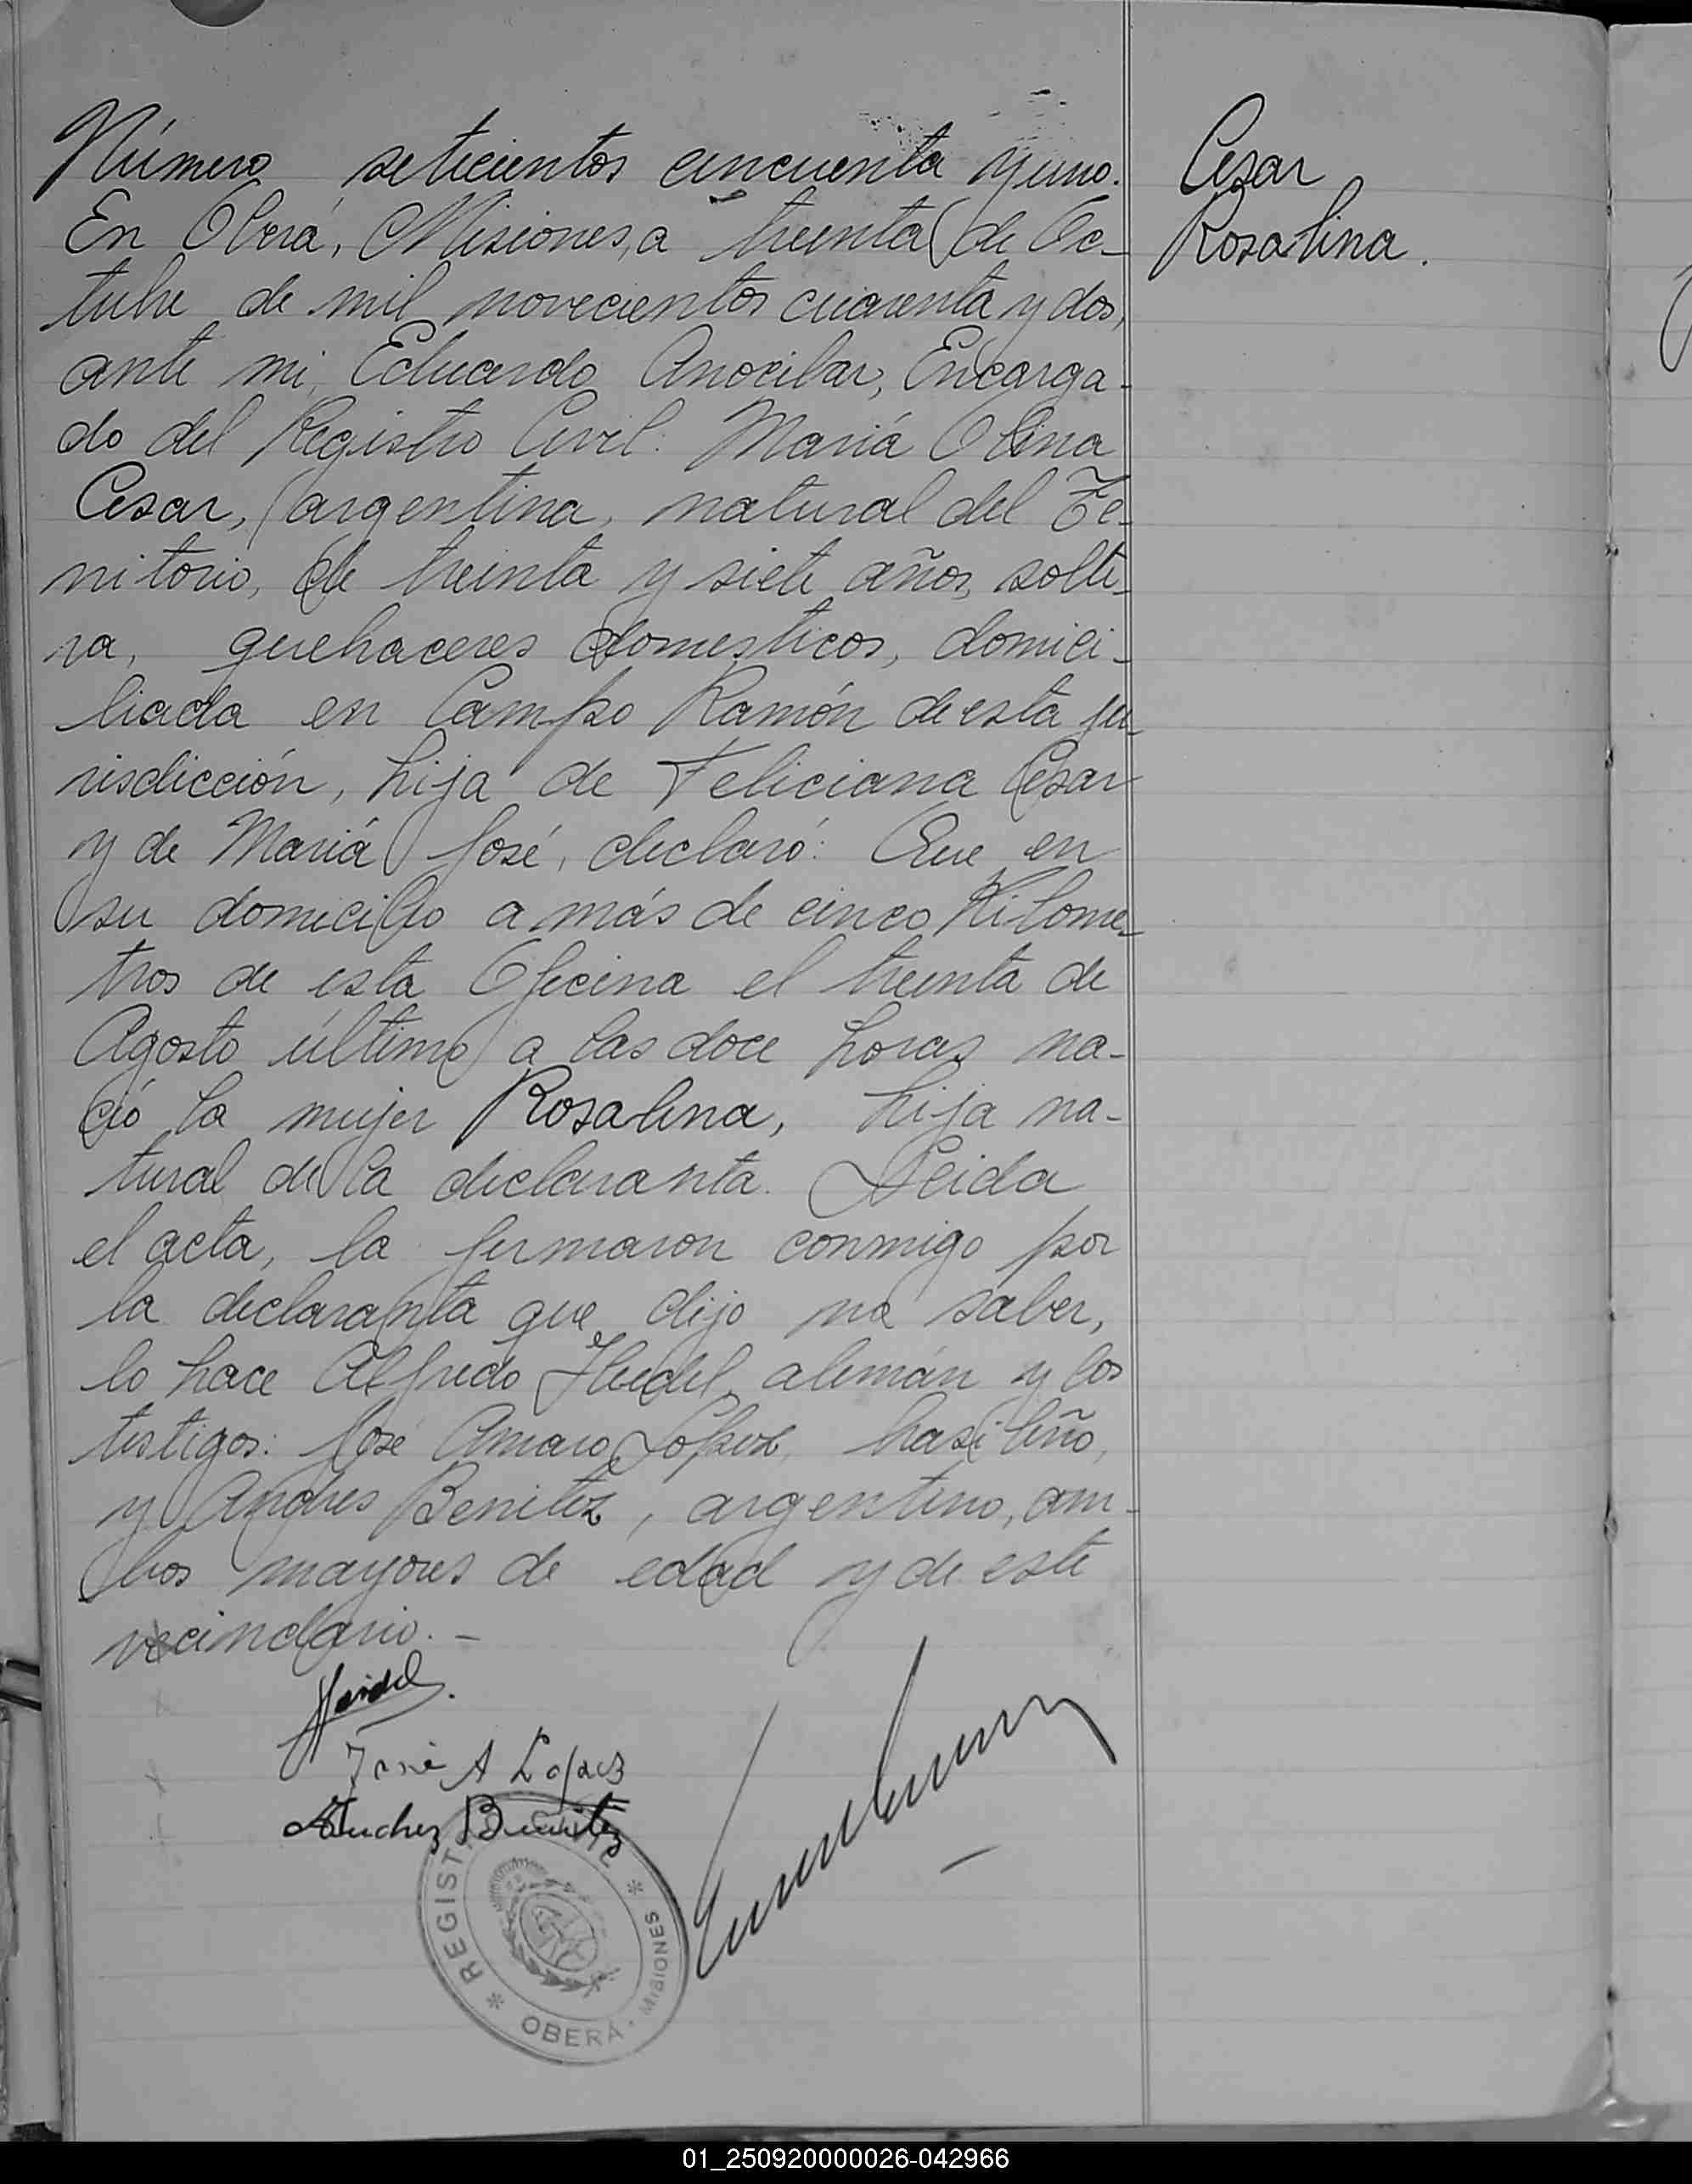 Número setecientos cincuenta y uno.
En Oberá, Misiones, a treinta de Oc-
tubre de mil novecientos cuarenta y dos,
ante mi, Eduardo Anocibar, Encarga-
do del Registro Civil: Mariá Olina
Cesar, argentina, natural del Te-
rritorio, de treinta y siete años, solte-
ra, quehaceres domesticos, domici-
liada en Campo Ramón de esta ju-
risdicción, hija de Feliciana Cesar
y de Mariá José, declaró: Que en
su domicilio a más de cinco Kilome-
tros de esta Oficina el treinta de
Agosto último a las doce horas na-
ció la mujer Rosalina, hija na-
tural de la declaranta. Leida
el acta, la firmaron conmigo por
la declaranta que dijo no saber,
lo hace Alfredo Heidel, alemán y los
testigos: José Amaro Lopez, brasileño,
y Andres Benitez, argentino, am-
bos mayores de edad y de este
vecindario.-
Cesar
Rosalina.
Heidel.
José A Lopez
Andrez Benitez
* REGIST
* MISIONES
OBERÁ.
01_250920000026-042966